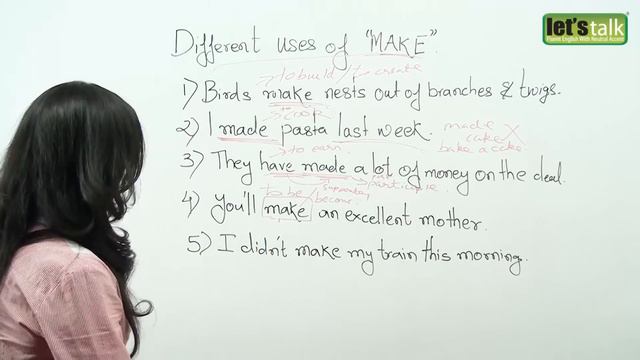 let's talk
Fluent English With Neutral Accent
Different uses of "MAKE".
to build / to create
1) Birds make nests out of branches & twigs.
to cook
2) I made pasta last week.
made
cake X
bake a cake
to earn
3) They have made a lot of money on the deal.
participle
to be /
become
4) You'll make an excellent mother.
5) I didn't make my train this morning.